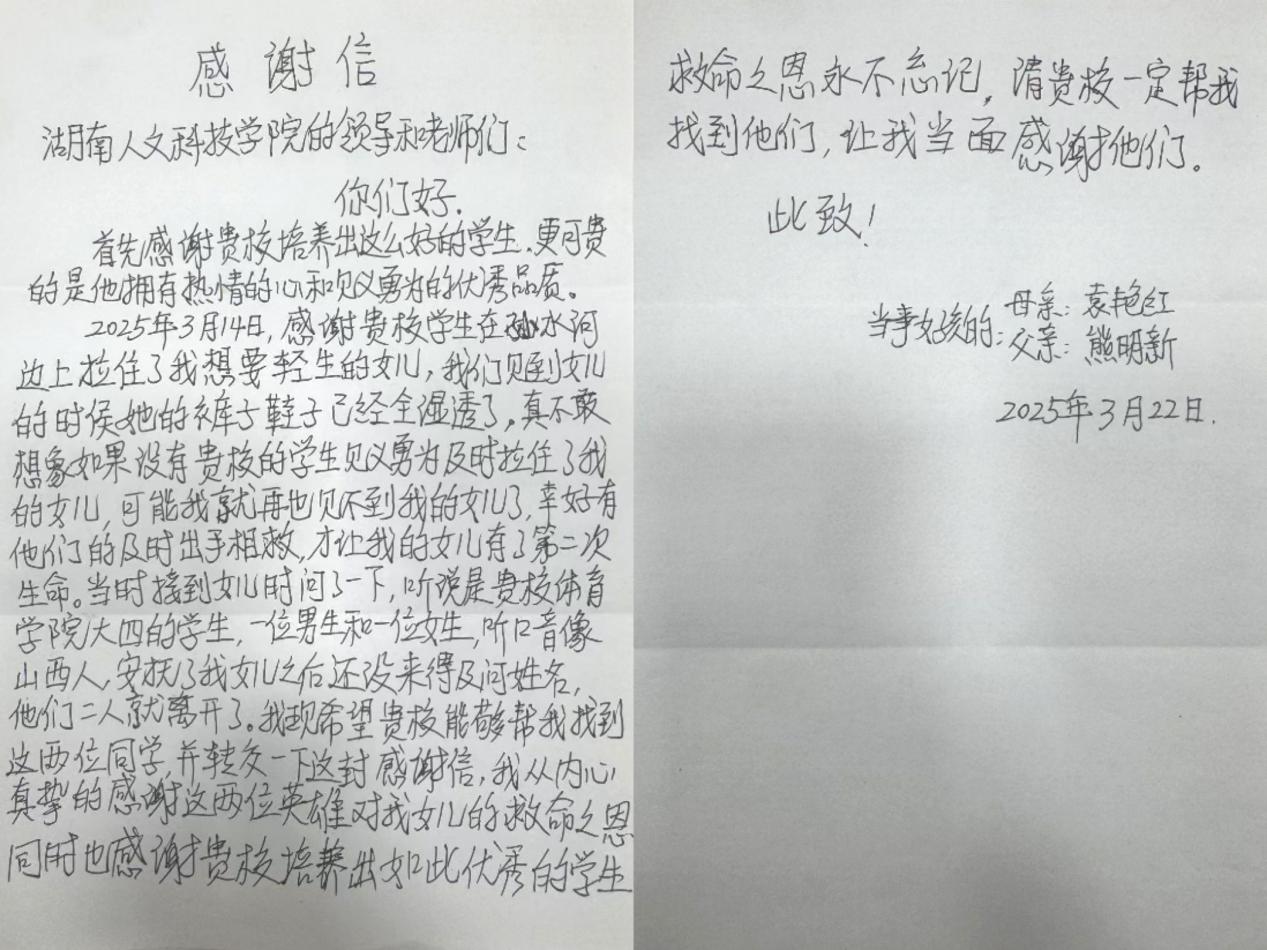 感谢信
湖南人文科技学院的领导和老师们：
你们好.
首先感谢贵校培养出这么好的学生.更可贵
的是他拥有热情的心和见义勇为的优秀品质。
2025年3月14日,感谢贵校学生在孙水河
边上拉住了我想要轻生的女儿,我们见到女儿
的时侯她的裤子鞋子已经全湿透了。真不敢
想象如果没有贵校的学生见义勇为及时拉住了我
的女儿,可能我就再也见不到我的女儿了,幸好有
他们的及时出手相救,才让我的女儿有了第二次
生命。当时接到女儿时问了一下,听说是贵校体育
学院大四的学生,一位男生和一位女生,听口音像
山西人,安抚了我女儿之后还没来得及问姓名,
他们二人就离开了。我现希望贵校能够帮我找到
这两位同学,并转交一下这封感谢信,我从内心
真挚的感谢这两位英雄对我女儿的救命之恩
同时也感谢贵校培养出如此优秀的学生
救命之恩永不忘记,请贵校一定帮我
找到他们,让我当面感谢他们。
此致！
当事女孩的:母亲:袁艳红
父亲:熊明新
2025年3月22日.